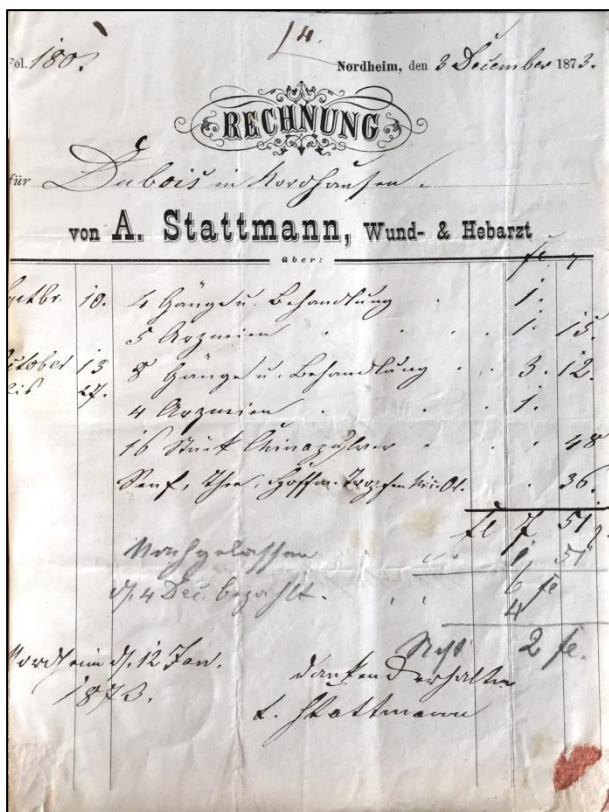 14.
Fol. 180. Nordheim, den 3 December 1873.
RECHNUNG
für Dubois in Nordhausen.
von A. Stattmann, Wund- & Hebarzt
über:
fl.
10. 4 Gänge u. Behandlung 1.
5 Arzneien 1. 15.
October 13 8 Gänge u. Behandlung 3. 12.
bis 27. 4 Arzneien 1.
16 Stück Chinapulver 48
Senf, Thee, Hoffm. Tropfen 36.
fl 7. 51
Nachgelassen 1 51
6 fl
d. 4 Dec. bezahlt. 4
Rest 2 fl.
Nordheim d. 12 Jan. dankend erhalten
1873. Stattmann